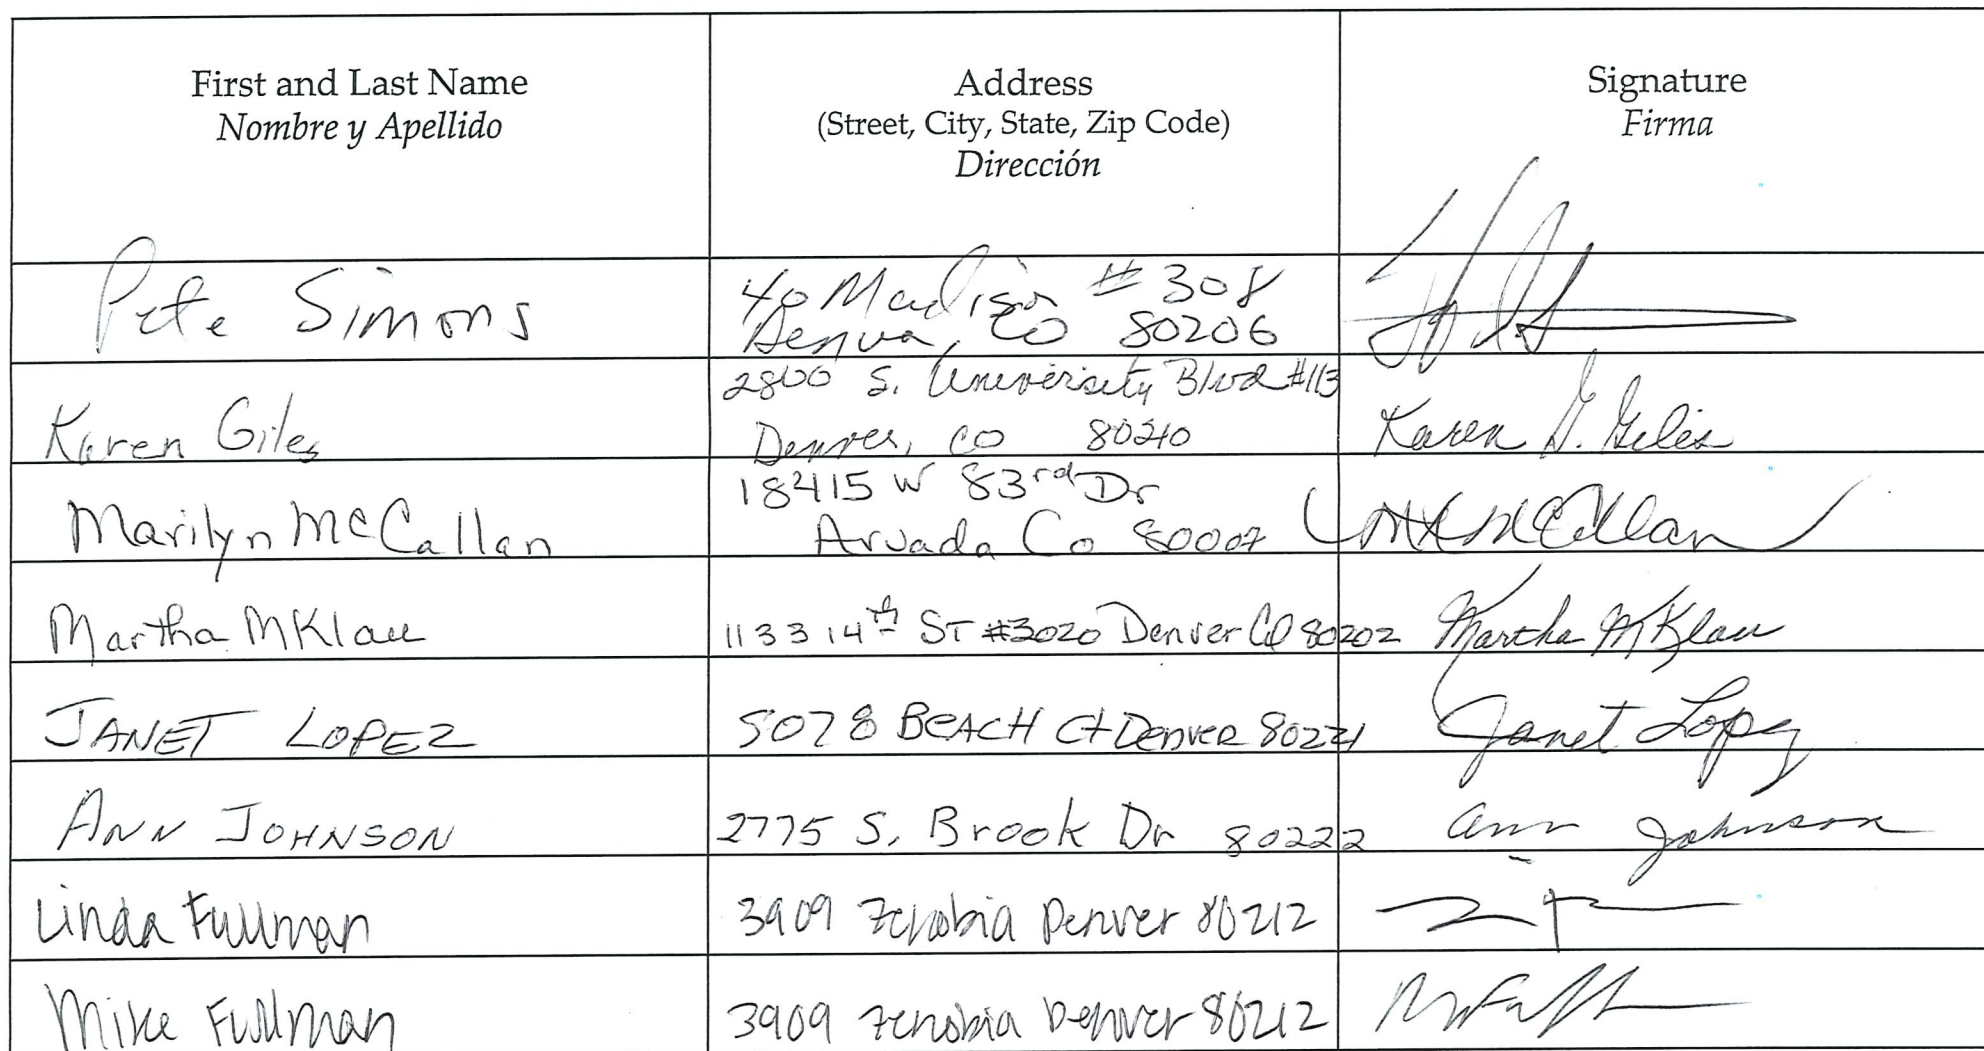 First and Last Name
Nombre y Apellido
Address
(Street, City, State, Zip Code)
Dirección
Signature
Firma
Pete Simons
40 Madison #308
Denver, CO 80206
Karen Giles
2800 S. University Blvd #113
Denver, CO 80210
Karen G. Giles
Marilyn McCallan
18415 W 83rd Dr
Arvada Co 80007
McCallan
Martha M Klau
1133 14th ST #3020 Denver CO 80202
Martha M Klau
JANET LOPEZ
5078 BEACH Ct Denver 80221
Janet Lopez
ANN JOHNSON
2775 S. Brook Dr 80222
Ann Johnson
Linda Fullman
3909 Zenobia Denver 80212
Mike Fullman
3909 Zenobia Denver 80212